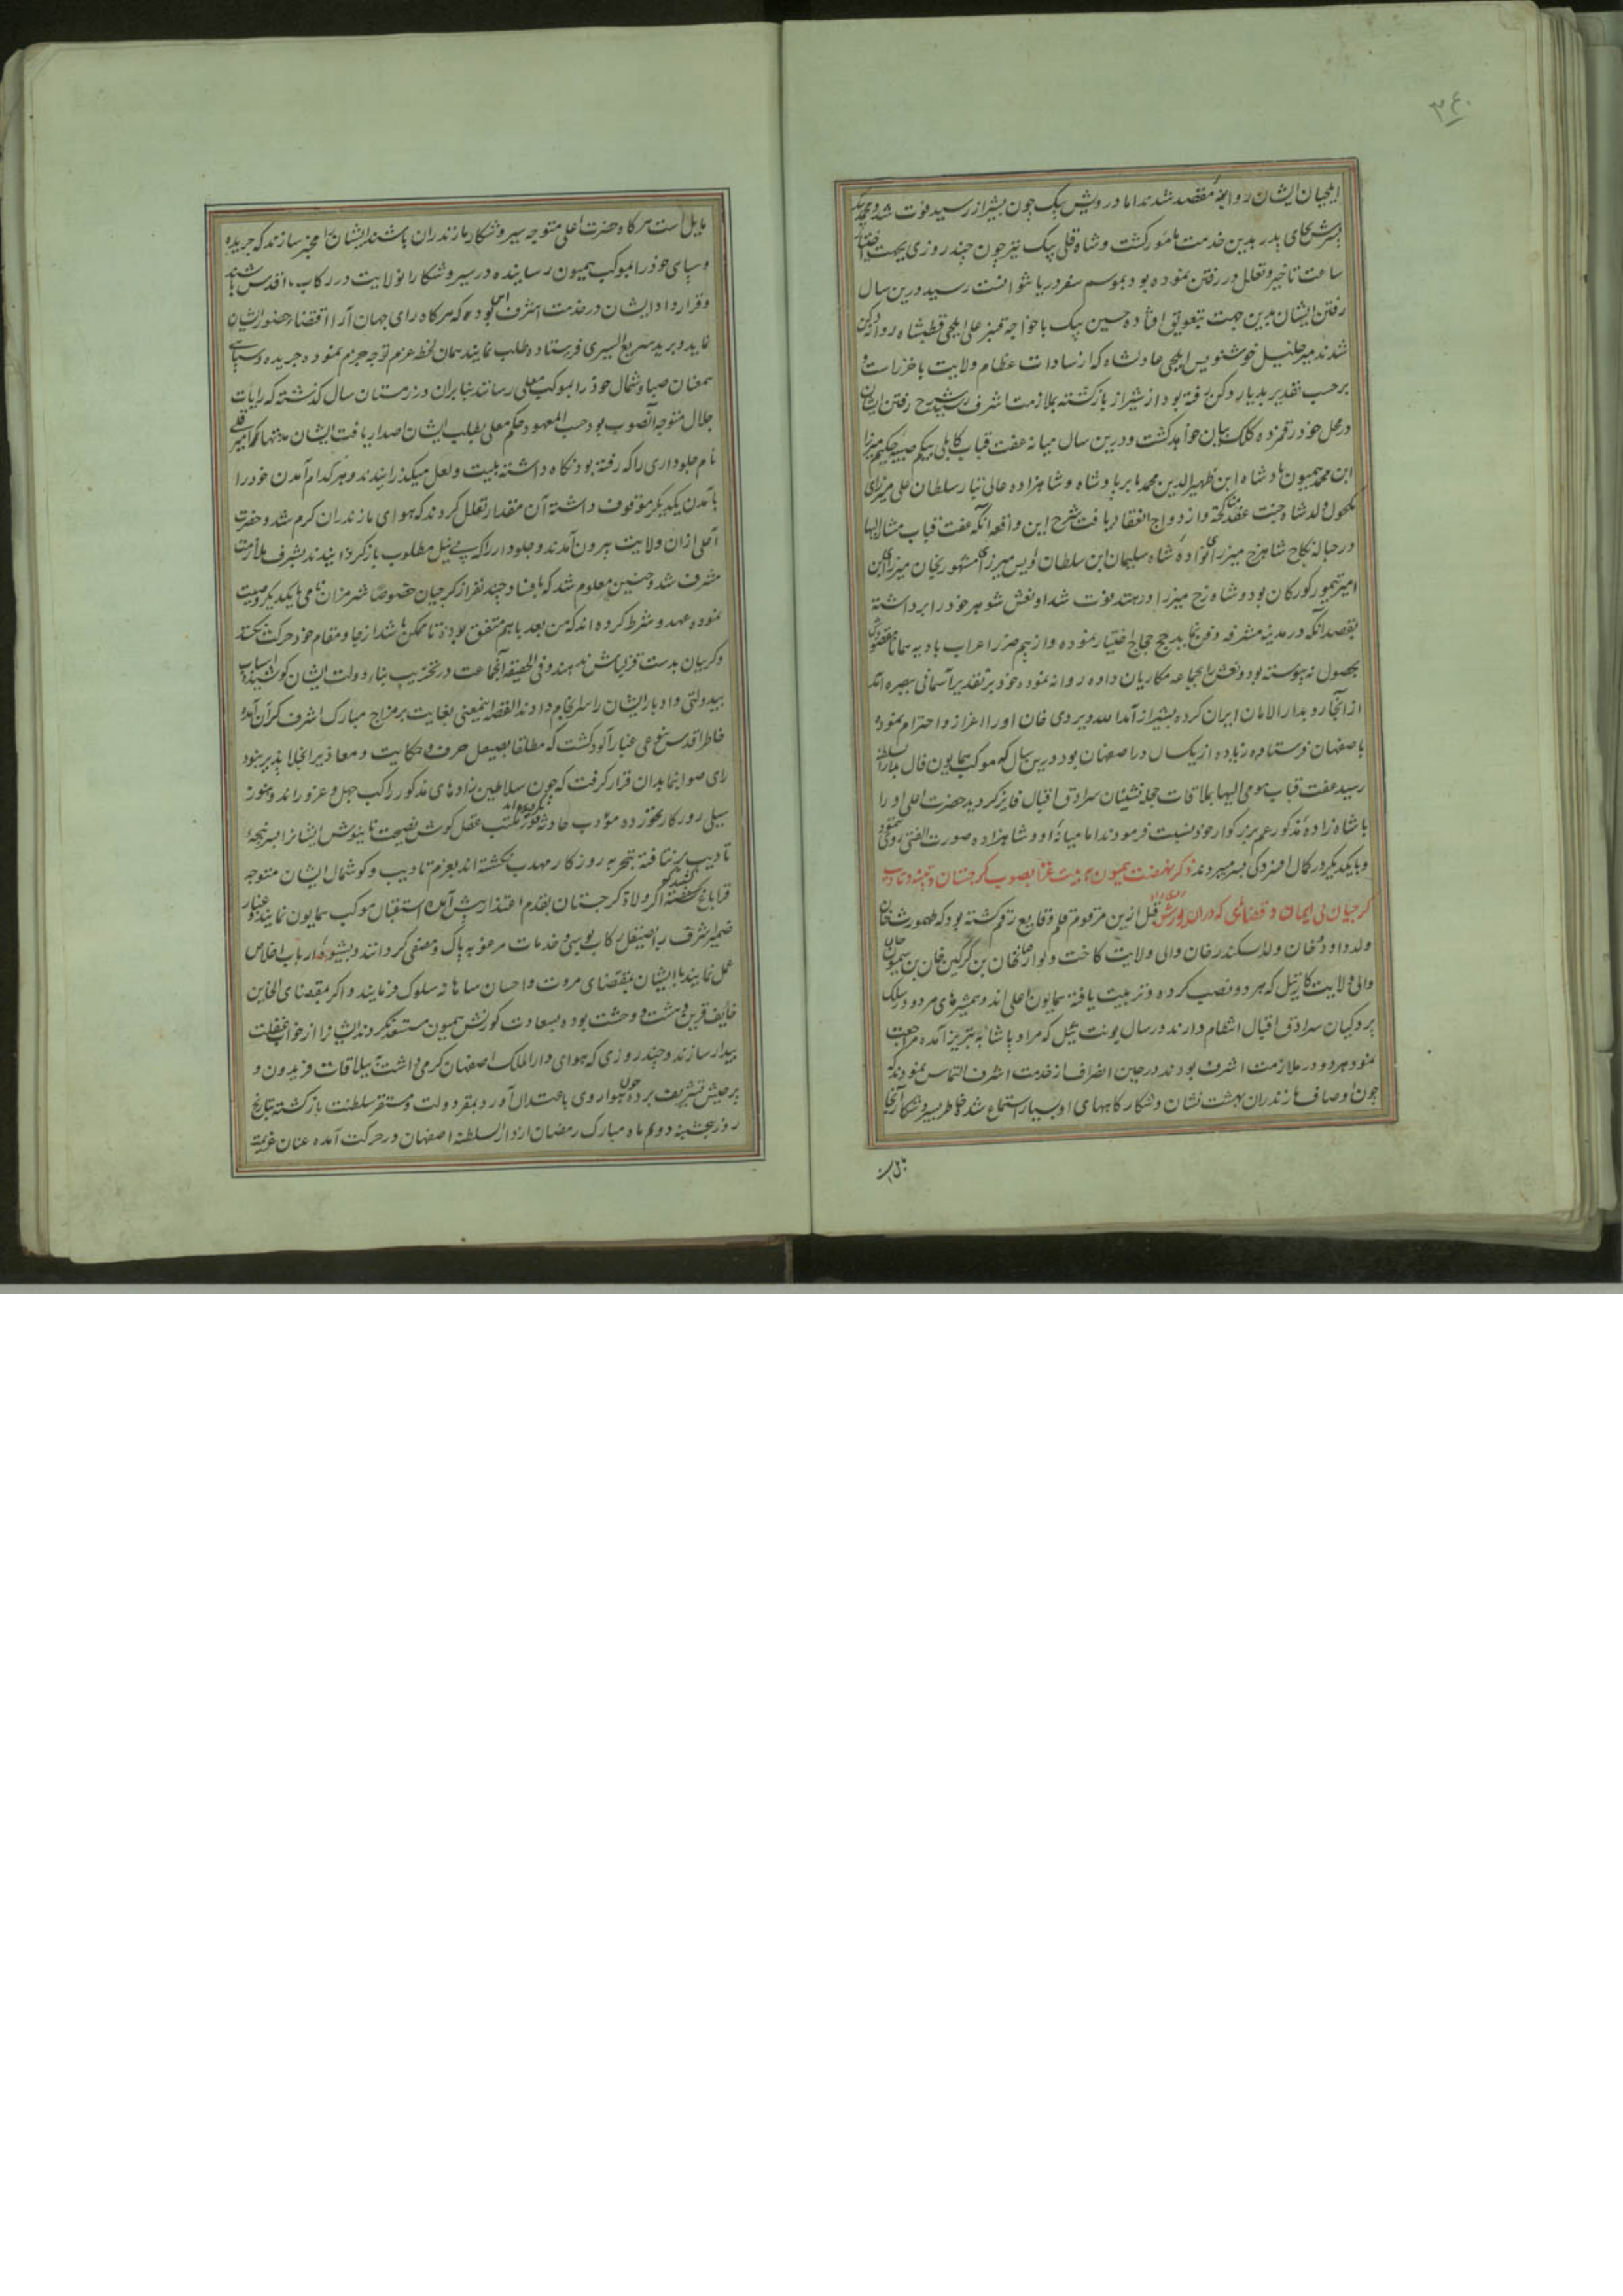 ۳۴۰
ایلچیان ایشان روانهٔ مقصد شدند اما درویش بیک چون بشیراز رسید فوت شد و محمد بیک
پسرش بجای پدر بدین خدمت مامور کشت و شاه قلی بیک نیز چون چند روزی بجهت اختیار
ساعت تاخیر و تعلل در رفتن نموده بود بموسم سفر دریا نتوانست رسید درین سال
رفتن ایشان بدین جهت بتعویق افتاده حسین بیک با خواجه قنبر علی ایلچی قطبشاه روانه دکن
شدند میر خلیل خوشنویس ایلچی عادلشاه که از سادات عظام ولایت باخرز است و
برحسب تقدیر بدیار دکن رفته بود از شیراز بازکشته بملازمت اشرف رسید شرح رفتن ایشان
در محل خود رقمزده کلک بیان خواهد کشت و درین سال میانه عفت قباب کابلی بیکم صبیه حکیم میرزا
ابن محمد همیون پادشاه ابن ظهیر الدین محمد بابر پادشاه و شاهزاده عالی تبار سلطان علی میرزای
مکحول ولد شاه جنت عقد مناکحة و ازدواج انعقاد یافت شرح این واقعه آنکه عفت قباب مشار الیها
در حباله نکاح شاهرخ میرزای نواده شاه سلیمان ابن سلطان اویس میرزای المشهور بخان میرزای ابن
امیر تیمور کورکان بود و شاهرخ میرزا در هند فوت شد او نعش شوهر خود را برداشته
بقصد آنکه در مدینه مشرفه دفن نماید حج حجاج اختیار نموده و از بیم ضرر اعراب بادیه همانا مقصودش
بحصول نه پیوسته بود و نعش را بجماعه مکاریان داده روانه نموده خود بر تقدیر آسمانی ببصره آمد
از آنجا رو بدار الامان ایران کرده بشیراز آمد الله ویردی خان او را اعزاز و احترام نموده
باصفهان فرستاد و زیاده از یکسال در اصفهان بود درین سال که موکب همایون فال بدار السلطنه
رسید عفت قباب مومی الیها بملاقات حجله نشینان سرادق اقبال فایز کردید حضرت اعلی او را
با شاه زاده مذکور عم بزرکوار خود نسبت فرمودند اما میانهٔ او و شاهزاده صورت الفتی روی ننمود
و با یکدیکر در کمال افسردکی بسر میبردند ذکر نهضت همیون به نیت غزا بصوب کرجستان و تنبیه و تادیب
کرجیان بی ایمان و قضایای که در آن یورش روی داد قبل ازین مرقوم قلم وقایع رقم کشته بود که طهمورث خان
ولد داود خان ولد اسکندر خان والی ولایت کاخت و لوارصاب خان بن کرکین خان بن سمیون خان
والی ولایت کارتیل که هر دو نصب کرده و تربیت یافته همایون اعلی اند و همشیرهای هر دو در سلک
پردکیان سرادق اقبال انتظام دارند در سال یونت ئیل که مراد پاشا به تبریز آمده مراجعت
نمود هر دو در ملازمت اشرف بودند در حین انصراف از خدمت اشرف التماس نمودند که
چون اوصاف مازندران بهشت نشان و شکارکاههای او بسیار استماع شد خاطر بسیر و شکار آنجا
مایل است
مایل است هرکاه حضرت اعلی متوجه سیر و شکار مازندران باشند ایشان را مخبر سازند که جریده
و سپاهی خود را بموکب همیون رسانیده در سیر و شکار آنولایت در رکاب اقدس باشند
و قرارداد ایشان در خدمت اشرف اعلی بوده که هرکاه رای جهان آرا اقتضاء حضور ایشان
نماید و برید سریع السیری فرستاده طلب نمایند همان لحظه عزم توجه جزم نموده جریده و سپاهی
بمعنان صبا و شمال خود را بموکب معلی رسانند بنابران در زمستان سال کذشته که رایات
جلال متوجه آنصوب بود حسب المعهود حکم معلی بطلب ایشان اصدار یافت ایشان
نام جلوداری را که رفته بود نکاه داشته بلیت و لعل میکذرانیدند و هر کدام آمدن خود را
بآمدن یکدیکر موقوف داشته آن مقدار تعلل کردند که هوای مازندران کرم شد و حضرت
اعلی ازان ولایت بیرون آمدند و جلودار را که بی نیل مطلوب بازکردانیدند بشرف ملازمت
مشرف شد و چنین معلوم شد که بافساد چند نفر از کرجیان خصوصا شرمزان نامی با یکدیکر وصیت
نموده عهد و شرط کرده اند که من بعد باهم متفق بوده تا ممکن باشد از جا و مقام خود حرکت نکنند
و کریبان بدست قزلباش ندهند و فی الحقیقه آنجماعت در تخریب بناء دولت ایشان کوشیده اسباب
بیدولتی و ادبار ایشان را سرانجام دادند القصه اینمعنی بغایت بر مزاج مبارک اشرف کران آمده
خاطر اقدس بنوعی غبار آلود کشت که مطلقا بصیقل حرف و حکایت و معاذیر انجلا پذیر نبود
رای صوابنمای بدان قرار کرفت که چون سلاطین زادهای مذکور راکب جهل و غرور اند و هنوز
سیلی روزکار نخورده مؤدب حادثه در مکتب عقل کوش نصیحت نانیوش ایشانرا به سرپنجهٔ
تادیب برنتافته بتجربه روزکار مهذب نکشته اند بعزم تادیب و کوشمال ایشان متوجه
قراباغ کشته اکر ولاة کرجستان بقدم اعتذار پیش آمده استقبال موکب همایون نمایند و غبار
ضمیر اشرف را بصیقل رکاب بوسی و خدمات مرغوبه پاک و مصفی کردانند و بشیوهٔ ارباب اخلاص
عمل نمایند با ایشان بمقتضای مروت و احسان شاهانه سلوک فرمایند و اکر بمقتضای الخاین
خایف قرین دهشت و وحشت بوده بسعادت کورنش همیون مستسعد نکردند ایشانرا از خواب غفلت
بیدار سازند و چند روزی که هوای دار الملک اصفهان کرمی داشت به ییلاقات فریدون و
برجیش تشریف برده چون هوا روی باعتدال آورد بمقر دولت و مستقر سلطنت بازکشته بتاریخ
روز پنجشنبه دوم ماه مبارک رمضان از دار السلطنه اصفهان در حرکت آمده عنان عزیمت